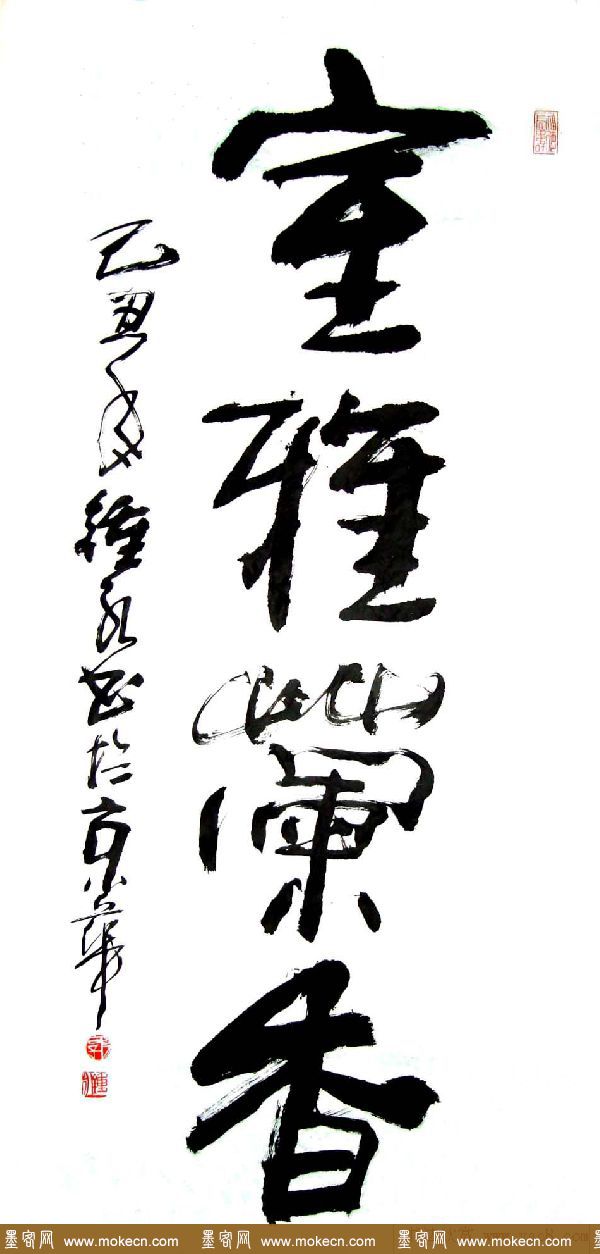 室雅蘭香
己丑年鍾永书於京華
墨客网 www.mokecn.com 墨客网 www.mokecn.com 墨客网 www.mokecn.com